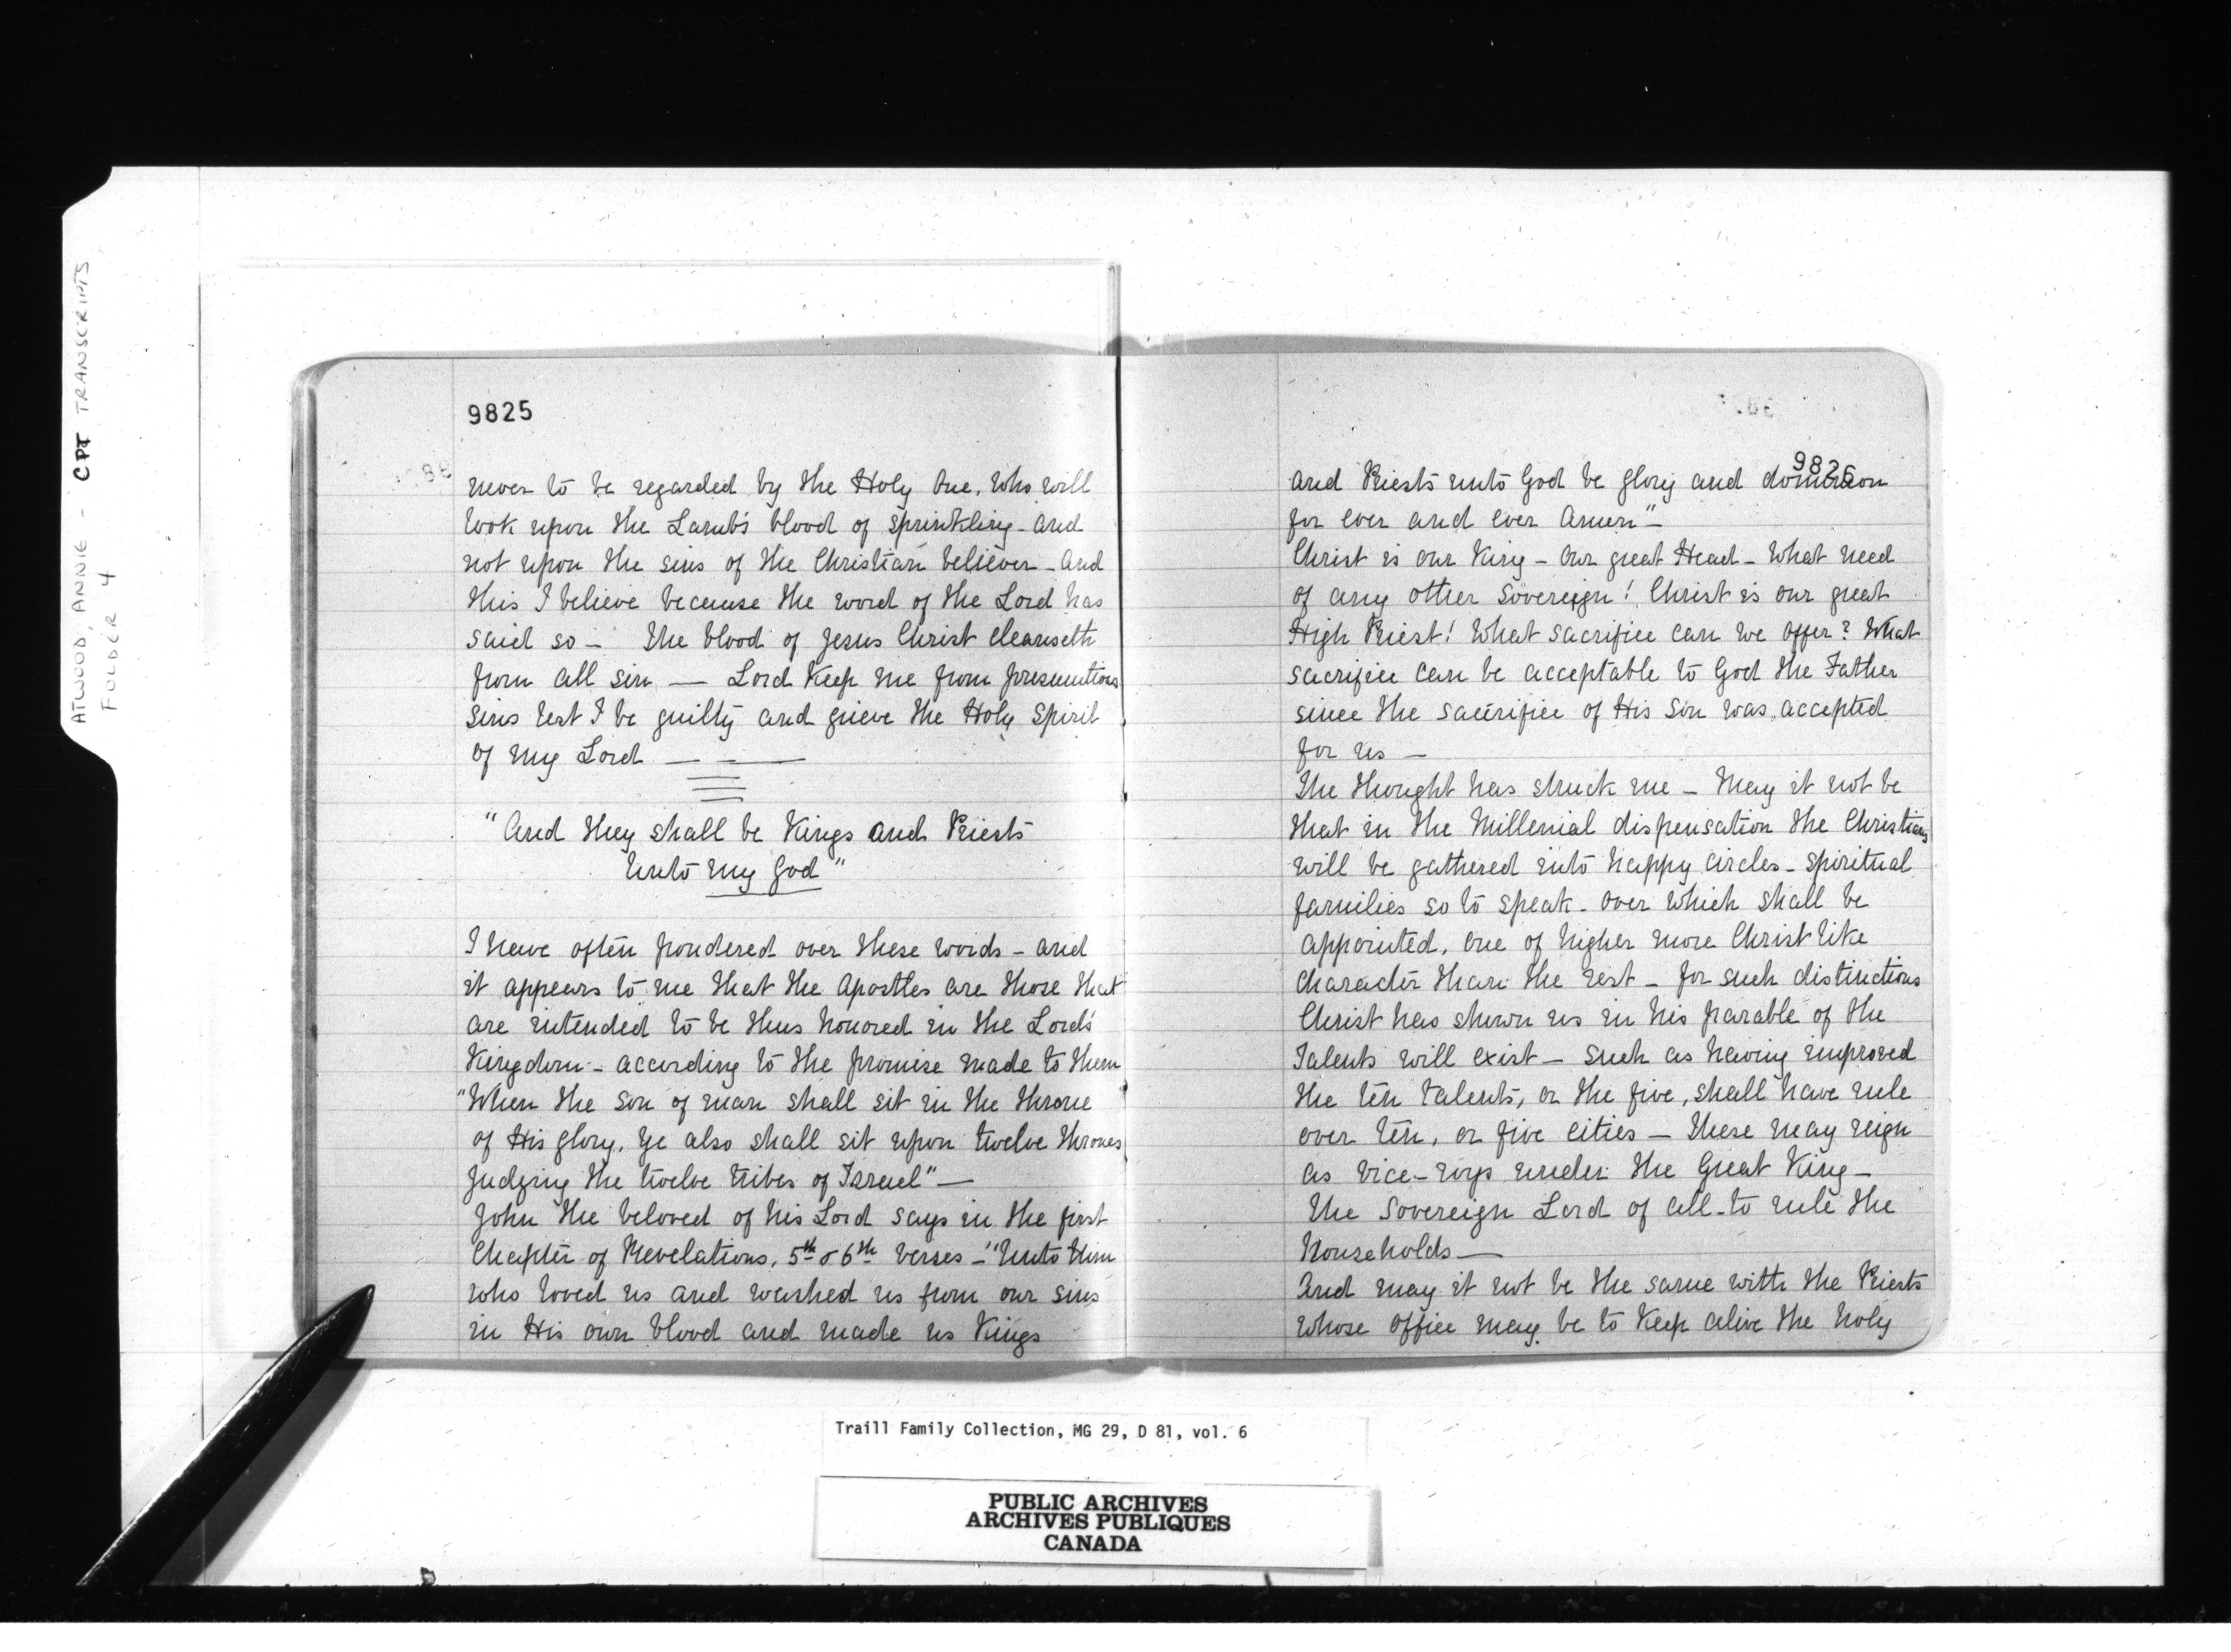 ATWOOD, ANNIE - CPT TRANSCRIPTS
FOLDER 4
9825
never to be regarded by the Holy One, who will
look upon the Lamb's blood of sprinkling - and
not upon the sins of the Christian believer - and
this I believe because the word of the Lord has
said so - The blood of Jesus Christ cleanseth
from all sin — Lord keep me from presumtious
sins lest I be guilty and grieve the Holy Spirit
of my Lord — —
"And they shall be Kings and Priests
Unto my God"
I have often pondered over these words - and
it appears to me that the Apostles are those that
are intended to be thus honored in the Lord's
Kingdom - according to the promise made to them
"When the Son of man shall sit in the throne
of His glory, Ye also shall sit upon twelve thrones
judging the twelve tribes of Israel" —
John the beloved of his Lord says in the first
Chapter of Revelations, 5th & 6th verses - "Unto Him
who loved us and washed us from our sins
in His own blood and made us Kings
9826
and Priests unto God be glory and dominion
for ever and ever Amen" -
Christ is our King - Our great Head - What need
of any other Sovereign! Christ is our great
High Priest! What sacrifice can we offer? What
sacrifice can be acceptable to God the Father
since the sacrifice of His Son was accepted
for us —
The thought has struck me - May it not be
that in the Millenial dispensation the Christians
will be gathered into happy circles - spiritual
families so to speak - over which shall be
appointed, one of higher more Christ like
character than the rest - for such distinctions
Christ has shown us in his parable of the
Talents will exist - such as having improved
the ten talents, or the five, shall have rule
over ten, or five cities - These may reign
as vice-roys under the Great King -
The Sovereign Lord of all - to rule the
households —
And may it not be the same with the Priests
whose office may be to keep alive the holy
Traill Family Collection, MG 29, D 81, vol. 6
PUBLIC ARCHIVES
ARCHIVES PUBLIQUES
CANADA